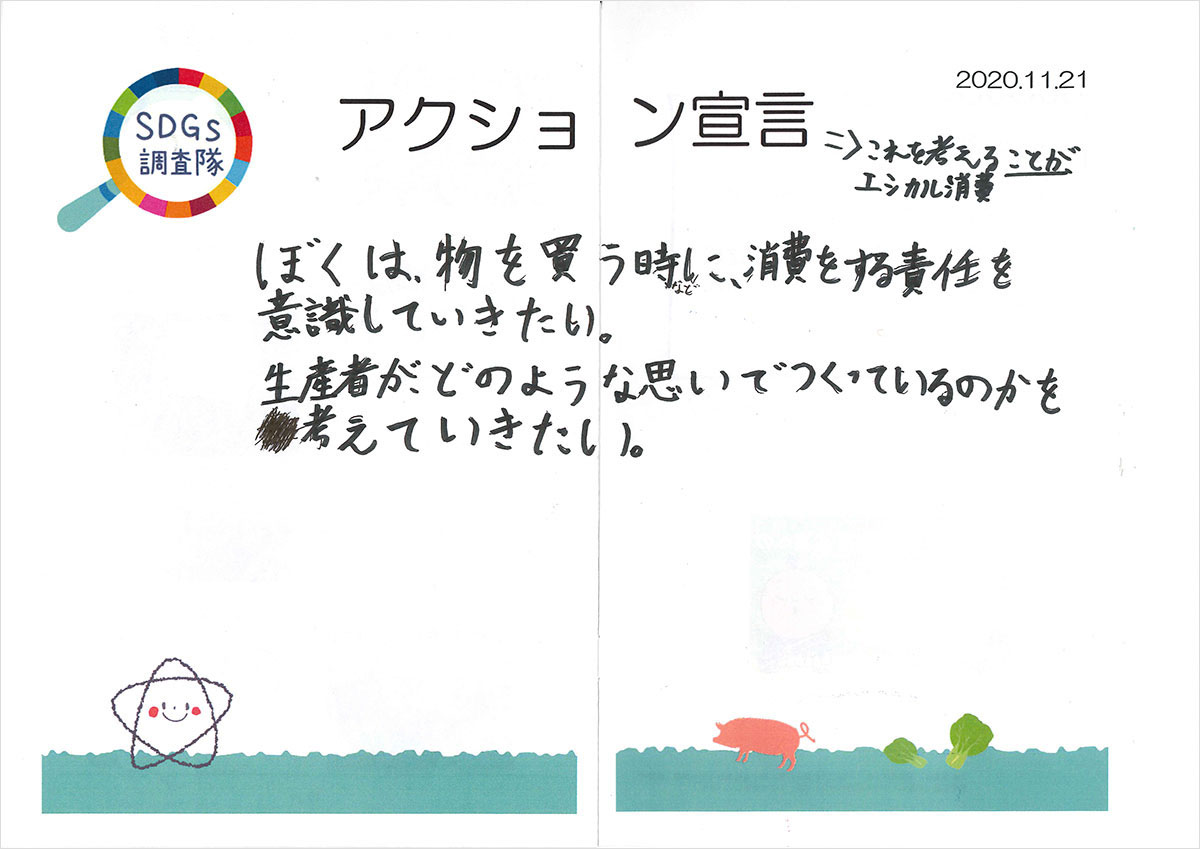 2020.11.21
SDGs
調査隊
アクション宣言
⇒これを考えることが、
エシカル消費
ぼくは、物を買う時などに、消費をする責任を
意識していきたい。
生産者が、どのような思いでつくっているのかを
考えていきたい。